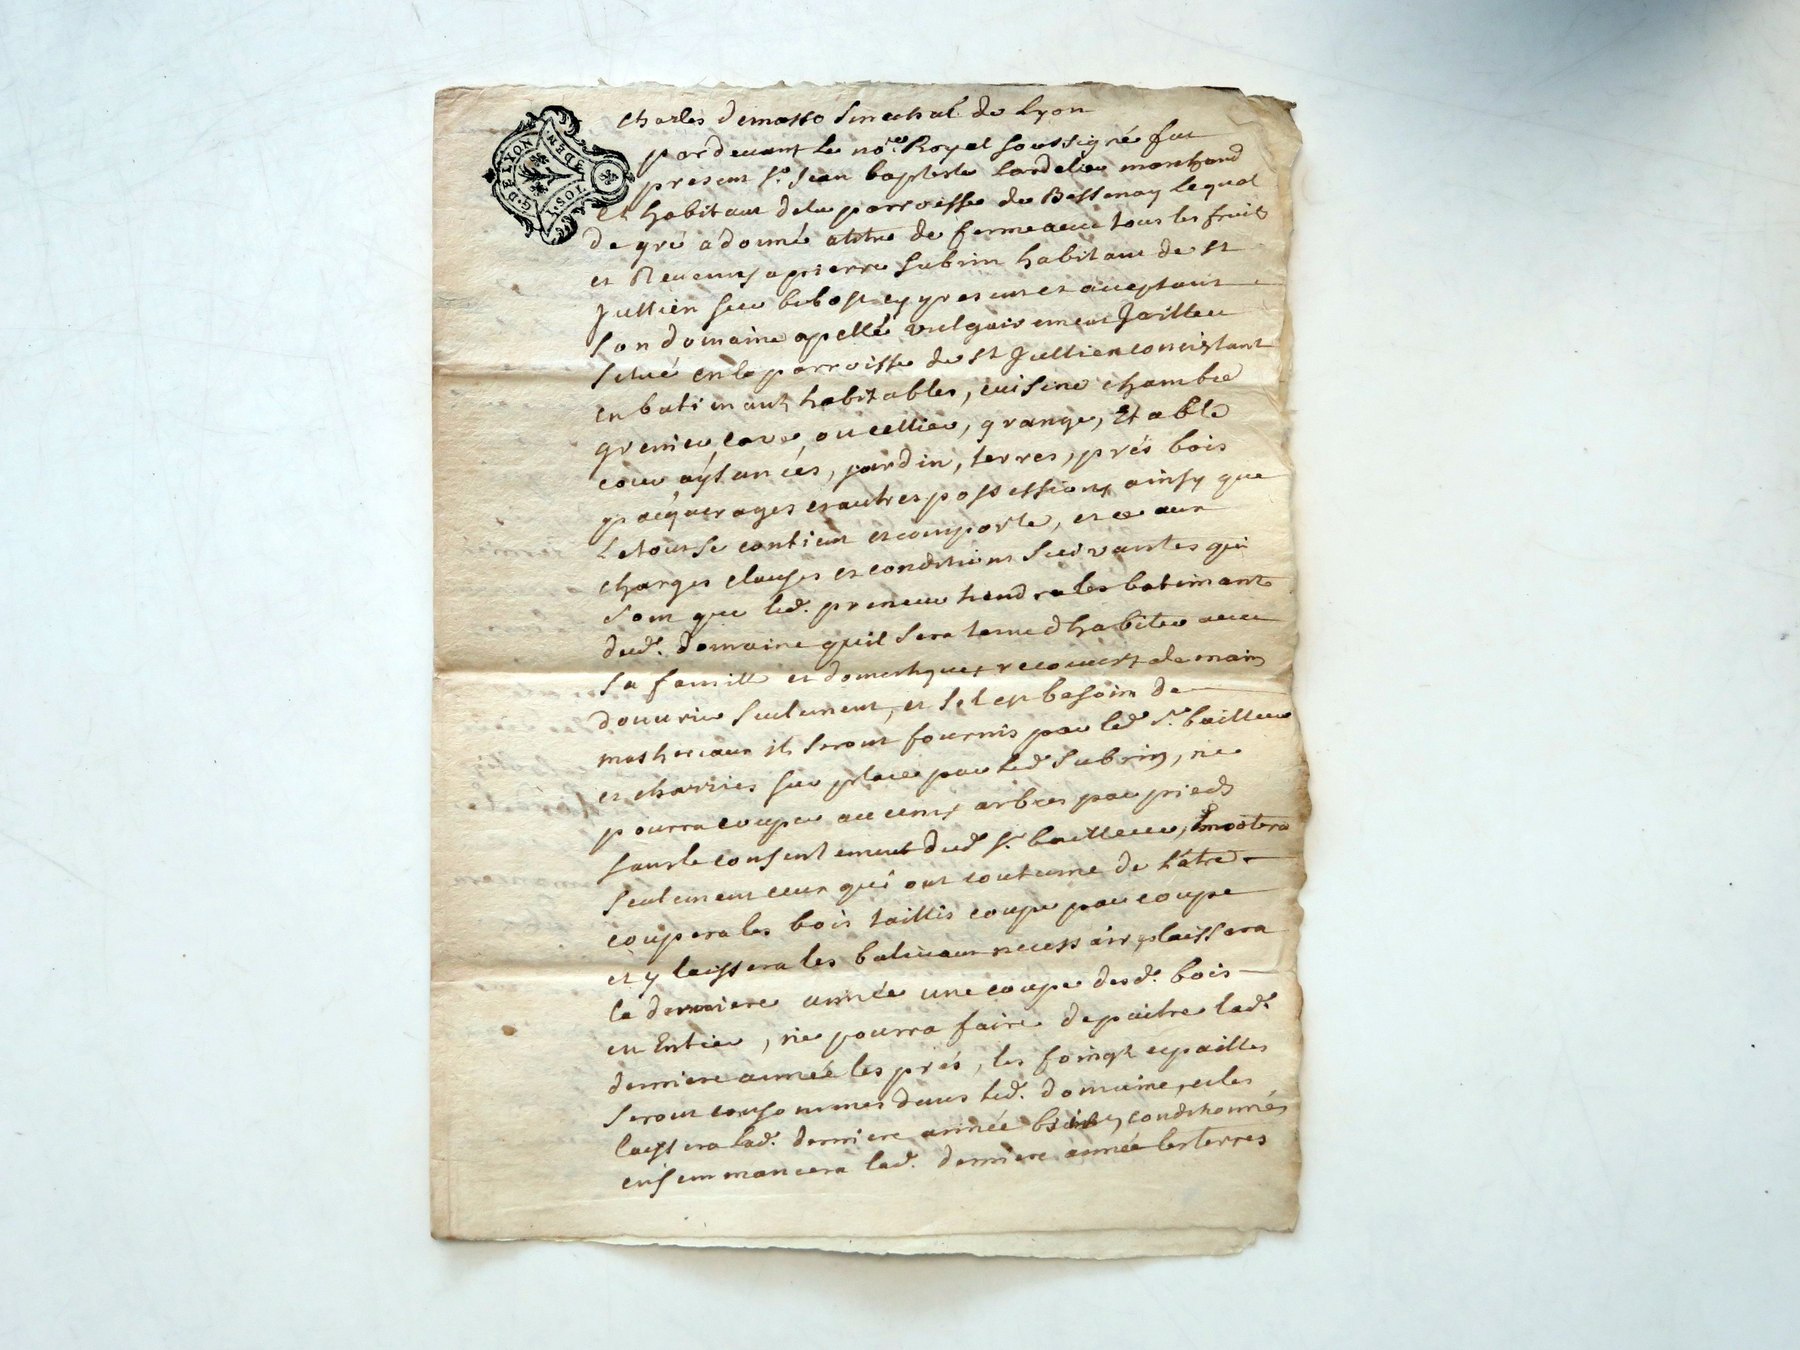 G. DE LYON
I. SOL 4 DEN.
Charles Demasso Senechal de Lyon
pardevant le no.re Royal soussigné fut
present S.r Jean baptiste Lardelier marchand
Et habitant dela parroisse de Bessenay Lequel
de gré adonné atitre de ferme avec tous les fruits
et Revenus apierre Subrin habitant de St
Jullien sur bibost cy present et acceptant
son domaine apellé vulgairement Jailleu
situé enla parroisse de St Jullien consistant
en batimants habitables, cuisine chambre
grenier, cave, ou cellier, grange, Etable
cour aysances, jardin, terres, prés bois
pacquerages et autres possessions ainsy que
Le tout se contient et comporte, et ce aux
charges clauses et conditions suivantes qui
sont que led. preneur tiendra les batimants
dud. domaine quil sera tenu dhabiter avec
sa famille et domestiques recouvert de main
douvrier seulement, et sil est besoin de
matheriaux ils seront fournis par led S.r bailleur
et charriés sur place par led Subrin, ne
pourra couper aucuns arbres par pieds
sans le consentement dud S.r bailleur,
seulement ceux qui ont coutume de Létre
coupera les bois taillis coupe par coupe
et y laissera les balivaux necessaires laissera
la derniere année une coupe desd. bois
en Entier, ne pourra faire depaitre lad.
derniere année les prés, les foings et pailles
seront consommes dans led. domaine, et les
laissera lad. derniere année conditionnés
ensemmancera lad. derniere année les terres